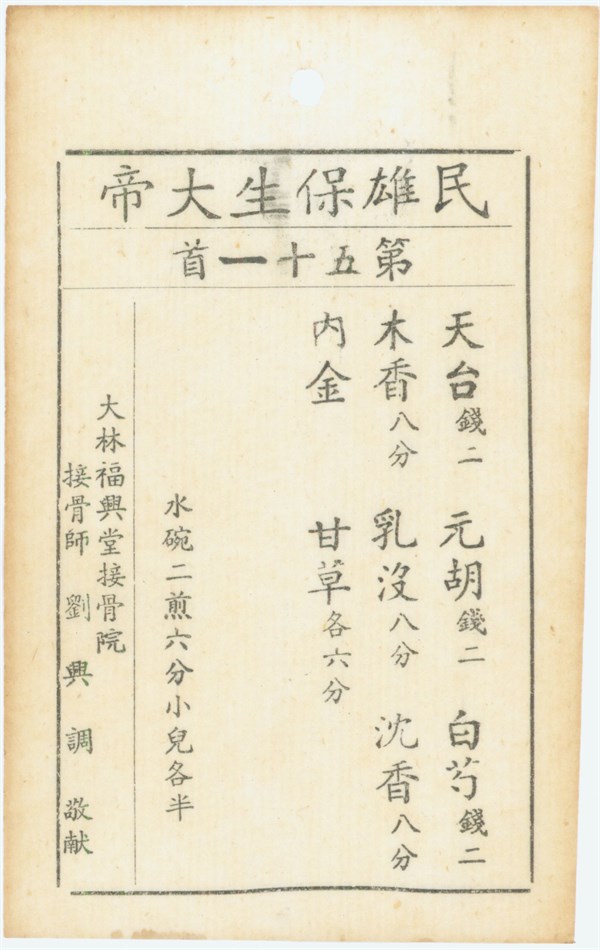 民雄保生大帝
第五十一首
天台錢二　元胡錢二　白芍錢二
木香八分　乳沒八分　沈香八分
內金　甘草各六分
水碗二煎六分小兒各半
大林福興堂接骨院
接骨師　劉興調　敬献